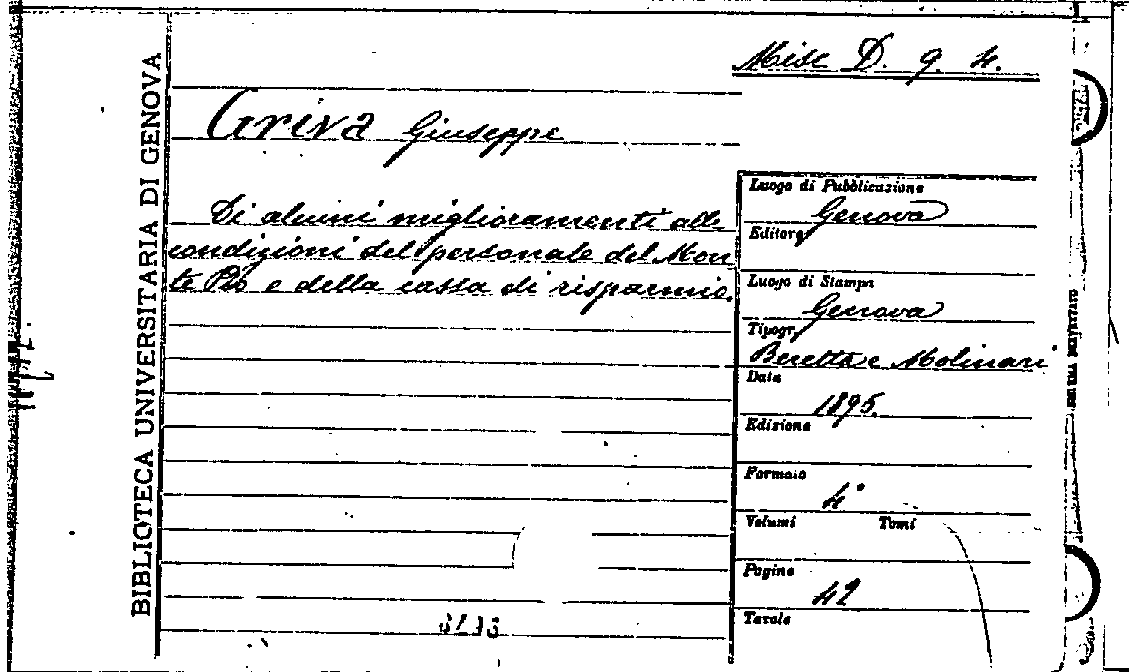 Misc D. 9. 4.
BIBLIOTECA UNIVERSITARIA DI GENOVA
Griva Giuseppe
Di alcuni miglioramenti alle
condizioni del personale del Mon
te Pio e della cassa di risparmio.
Luogo di Pubblicazione
Genova
Editore
Luogo di Stampa
Genova
Tipogr.
Beretta e Molinari
Data
1895.
Edizione
Formato
4°
Volumi Tomi
Pagine
42
Tavole